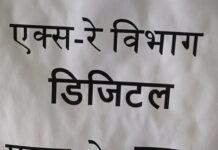 एक्स-रे विभाग
डिजिटल